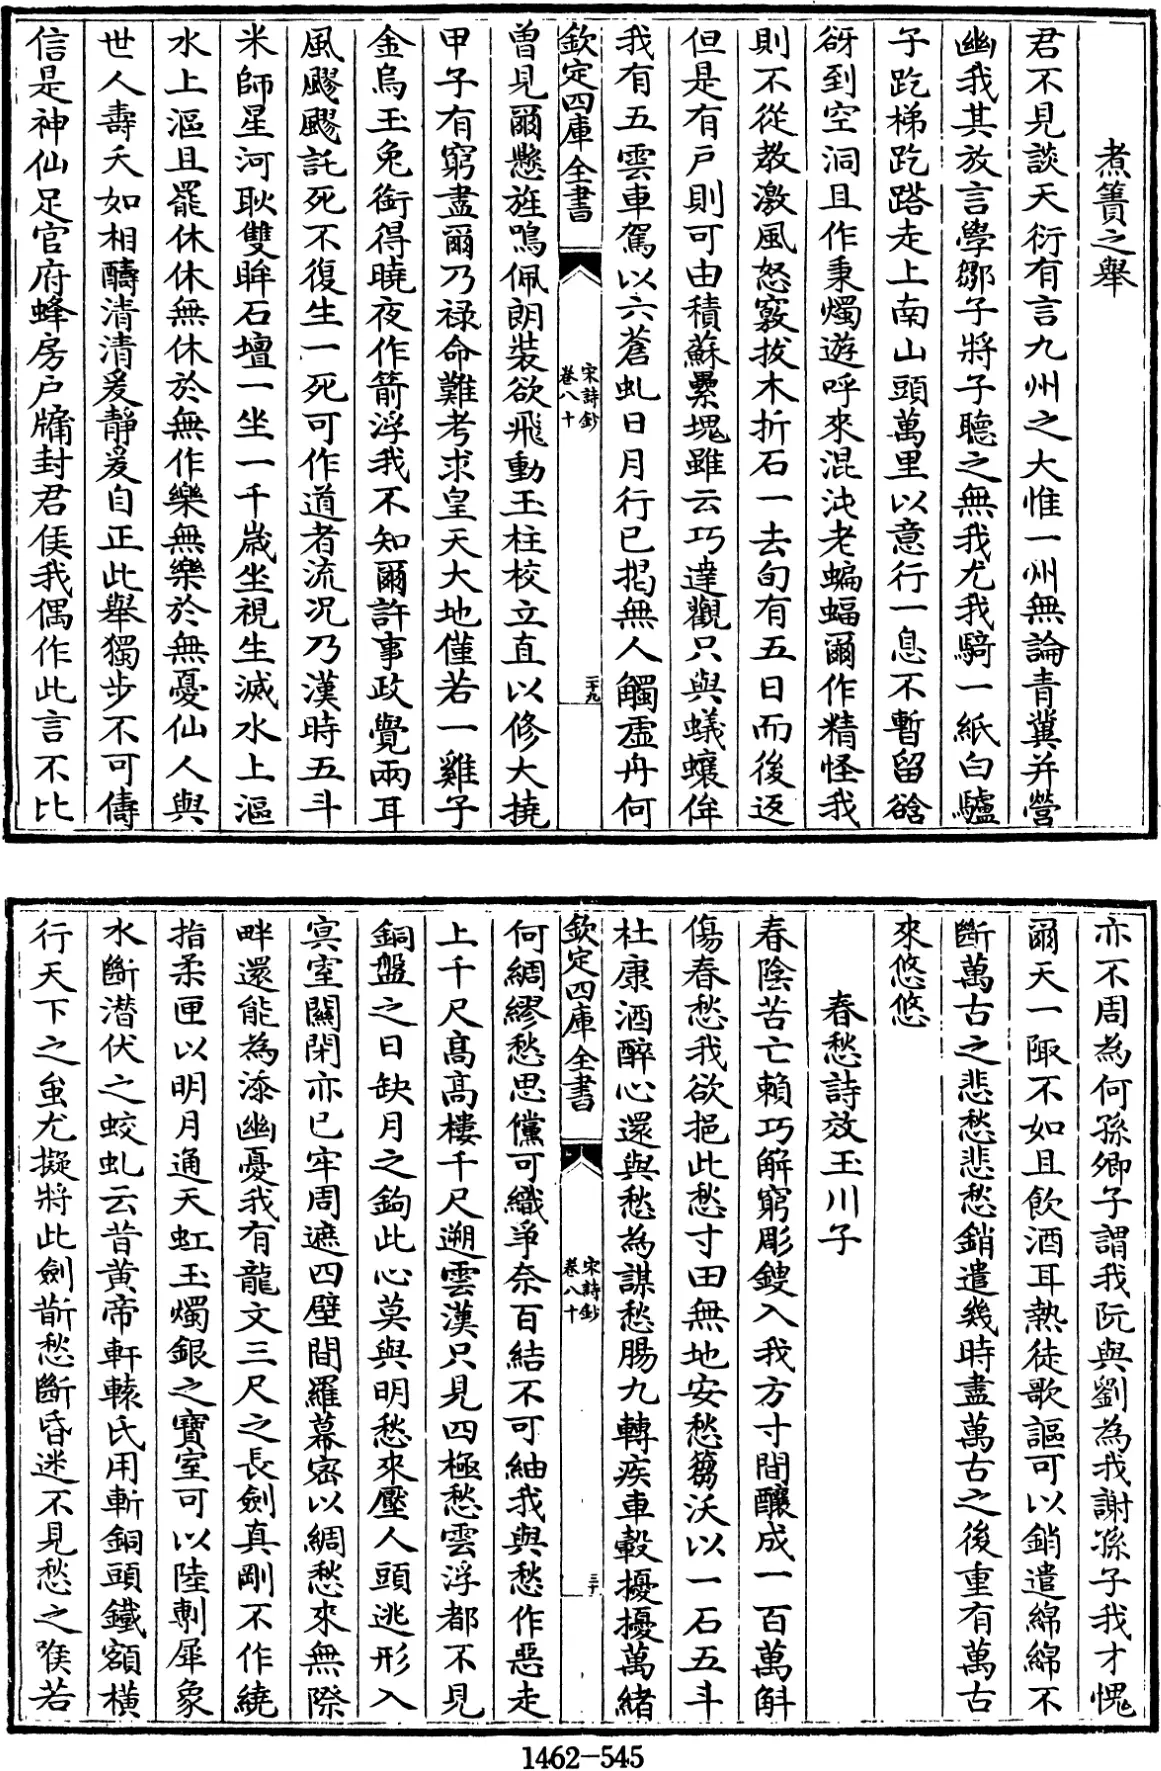 煮簀之舉
君不見談天衍有言九州之大惟一州無論青冀并營
幽我其放言學鄒子將子聽之無我尤我騎一紙白驢
子跎梯跎踏走上南山頭萬里以意行一息不暫留谽
谺到空洞且作秉燭遊呼來混沌老蝙蝠爾作精怪我
則不從教激風怒竅拔木折石一去旬有五日而後返
但是有戶則可由積蘇纍塊雖云巧達觀只與蟻蠰侔
我有五雲車駕以六蒼虬日月行已揭無人觸虛舟何
欽定四庫全書
宋詩鈔
卷八十
二十九
曽見爾懸旌鳴佩朗裝欲飛動玉柱校立直以修大撓
甲子有窮盡爾乃禄命難考求皇天大地僅若一雞子
金烏玉兔銜得曉夜作箭浮我不知爾許事政覺兩耳
風飂飂託死不復生一死可作道者流况乃漢時五斗
米師星河耿雙眸石壇一坐一千嵗坐視生滅水上漚
水上漚且罷休休無休於無作樂無樂於無憂仙人與
世人壽夭如相疇清清爰靜爰自正此舉獨步不可儔
信是神仙足官府蜂房戶牖封君侯我偶作此言不比
亦不周為何孫卿子謂我阮與劉為我謝孫子我才愧
爾天一陬不如且飲酒耳熱徒歌謳可以銷遣綿綿不
斷萬古之悲愁悲愁銷遣幾時盡萬古之後重有萬古
來悠悠
春愁詩效玉川子
春陰苦亡賴巧解窮彫鎪入我方寸間釀成一百萬斛
傷春愁我欲挹此愁寸田無地安愁蒭沃以一石五斗
杜康酒醉心還與愁為謀愁腸九轉疾車轂擾擾萬緒
欽定四庫全書
宋詩鈔
卷八十
三十
何綢繆愁思儻可織爭奈百結不可紬我與愁作惡走
上千尺髙髙樓千尺遡雲漢只見四極愁雲浮都不見
銅盤之日缺月之鉤此心莫與明愁來壓人頭逃形入
㝠室闗閉亦已牢周遮四壁間羅幕宻以綢愁來無際
畔還能為添幽憂我有龍文三尺之長劍真剛不作繞
指柔匣以明月通天虹玉燭銀之寶室可以陸剸犀象
水斷潛伏之蛟虬云昔黄帝軒轅氏用斬銅頭鐵額橫
行天下之蚩尤擬將此劍斮愁斷昏迷不見愁之㺅若
1462-545